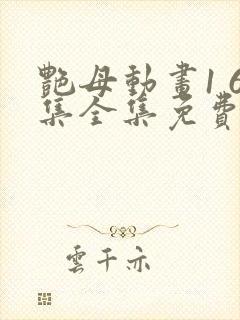 艷母動畫1 6
集全集免費
雲千亦